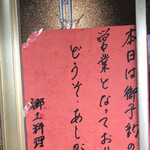 本日は御予約の
営業となってお
どうぞ、あしか
郷土料理